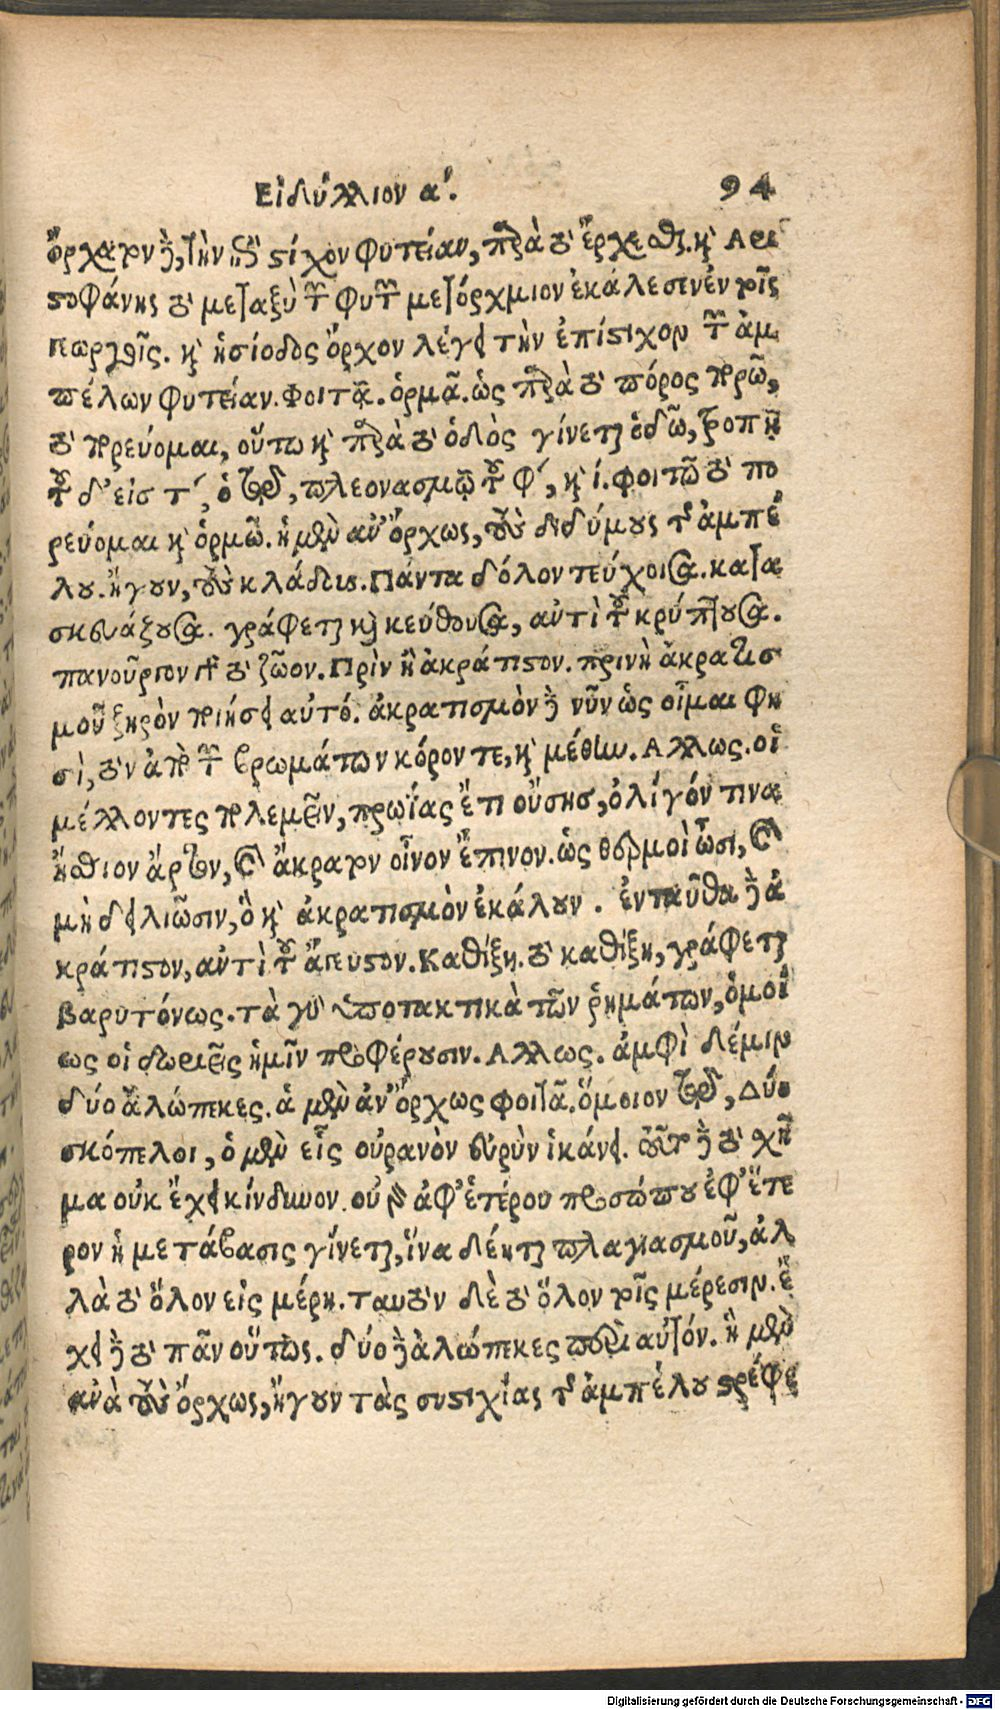 Εἰδύλλιον α΄. 94
ὄρχατον δὲ, τὴν κατὰ στίχον φυτείαν, παρὰ τὸ ἔρχεσθαι. καὶ Ἀρι
στοφάνης τὸ μεταξὺ τῶν φυτῶν μετόρχμιον ἐκάλεσεν ἐν τοῖς
γεωργοῖς. καὶ ἡσίοδος ὄρχον λέγει τὴν ἐπίστιχον τῶν ἀμ
πέλων φυτείαν. Φοιτᾷ. ὁρμᾷ. ὡς παρὰ τὸ πόρος πορῶ,
τὸ πορεύομαι, οὕτω καὶ παρὰ τὸ ὁδὸς γίνεται ὁδῶ, τροπῇ
τοῦ δ' εἰς τ΄, ὁτῶ, πλεονασμῷ τοῦ φ΄, καὶ ί. φοιτῶ τὸ πο
ρεύομαι καὶ ὁρμῶ. ἡ μὲν ἀν' ὄρχως, τοὺς διδύμους τῆς ἀμπέ
λου. ἤγουν, τοὺς κλάδους. Πάντα δόλον τεύχοισα. κατα
σκευάζουσα. γράφεται καὶ κεύθουσα, ἀντὶ τοῦ κρύπτουσα.
πανοῦργον γὰρ τὸ ζῶον. Πρὶν ἢ ἀκράτιστον. πρινὴ ἀκρατισ
μοῦ ξηρὸν ποιήσει αὐτό. ἀκρατισμὸν δὲ νῦν ὡς οἶμαι φη
σὶ, τὸν ἀπὸ τῶν βρωμάτων κόρον τε, καὶ μέθην. Ἄλλως. οἱ
μέλλοντες πολεμεῖν, πρωΐας ἔτι οὔσης, ὀλίγόν τινα
ἤσθιον ἄρτον, καὶ ἄκρατον οἶνον ἔπινον. ὡς θερμοὶ ὦσι, καὶ
μὴ δειλιῶσιν, ὃ καὶ ἀκρατισμὸν ἐκάλουν. ἐνταῦθα δὲ ἀ
κράτιστον, ἀντὶ τοῦ ἄγευστον. Καθίξῃ. τὸ καθίξῃ, γράφεται
βαρυτόνως. τὰ γὰρ ὑποτακτικὰ τῶν ῥημάτων, ὁμοί
ως οἱ δωριεῖς ἡμῖν προφέρουσιν. Ἄλλως. ἀμφὶ δέ μιν
δύο ἀλώπεκες. ἁ μὲν ἀν' ὄρχως φοιτᾷ. ὅμοιον τῷ, Δύο
σκόπελοι, ὁ μὲν εἰς οὐρανὸν εὐρὺν ἱκάνει. τοῦτο δὲ τὸ χῆ
μα οὐκ ἔχει κίνδυνον. οὐ γὰρ ἀφ' ἑτέρου προσώπου ἐφ' ἕτε
ρον ἡ μετάβασις γίνεται, ἵνα δέηται πλαγιασμοῦ, ἀλ
λὰ τὸ ὅλον εἰς μέρη. ταυτὸν δὲ τὸ ὅλον τοῖς μέρεσιν. ἔ
χει δὲ τὸ πᾶν οὕτως. δύο δὲ ἀλώπεκες περὶ αὐτόν. ἡ μὲν
ἀνὰ τοὺς ὄρχως, ἤγουν τὰς συστιχίας τῆς ἀμπέλου στρέφε
Digitalisierung gefördert durch die Deutsche Forschungsgemeinschaft - DFG